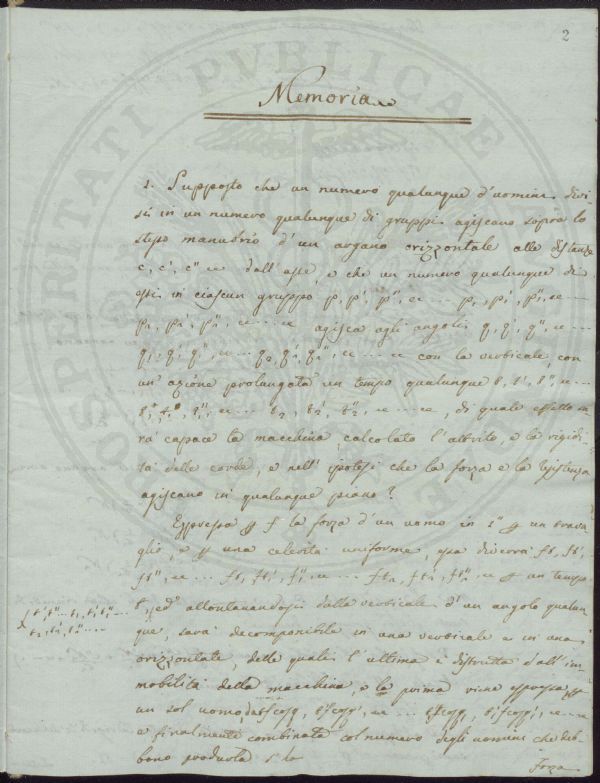 2
PROSPERITATI PVBLICAE
Memoria
1. Supposto che un numero qualunque d'uomini divi-
si in un numero qualunque di gruppi agiscano sopra lo
stesso manubrio d'un argano orizzontale alle distanze
c, c', c'' &c dall'asse, e che un numero qualunque di
essi in ciascun gruppo p, p', p'', &c ... p₁, p₁', p₁'', &c ...
p₂, p₂', p₂'', &c ... &c agisca agli angoli q, q', q'', &c ...
q₁, q₁', q₁'', &c ... q₂, q₂', q₂'', &c ... &c con la verticale, con
un'azione prolungata un tempo qualunque t, t', t'', &c ...
t₁, t₁', t₁'', &c ... t₂, t₂', t₂'', &c ... &c, di quale effetto sa-
rà capace la macchina, calcolato l'attrito, e la rigidi-
tà delle corde, e nell'ipotesi che la forza e la resistenza
agiscano in qualunque piano?
Espressa f la forza d'un uomo in 1'' un trava-
glio, e una celerità uniforme, essa diverrà ft, ft',
ft'', &c ... ft₁, ft₁', ft₁'', &c ... ft₂, ft₂', ft₂'', &c un tempo
t', t'' ... t₁, t₁', t₁'' ...
t₂, t₂', t₂'' ...
t, ed allontanandosi dalla verticale d'un angolo qualun-
que, sarà decomponibile in una verticale e in una
orizzontale, delle quali l'ultima è distrutta dall'im-
mobilità della macchina, e la prima viene espressa
un sol uomo
e finalmente combinata col numero degli uomini che deb-
bono produrla si ha
forza